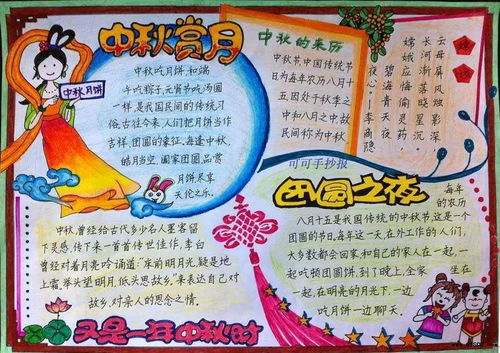 中秋赏月
中秋月饼
中秋吃月饼,和端
午吃粽子,元宵节吃汤圆
一样,是我国民间的传统习
俗。古往今来,人们把月饼当作
吉祥、团圆的象征。每逢中秋,
皓月当空,阖家团圆,品赏
月饼尽享
天伦之乐。
中秋的来历
中秋节,中国传统节
日,为每年农历八月十
五,因处于秋季之
中和八月之中,故
民间称为中秋
嫦娥
云母屏风烛影深
长河渐落晓星沉
嫦娥应悔偷灵药
碧海青天夜夜心
——李商隐
可可手抄报
团圆之夜
每年
的农历
八月十五是我国传统的中秋节,这是一个
团圆的节日。每年这一天,在外工作的人们,
大多数都会回家,和自己的家人在一起,一
起吃顿团圆饼,到了晚上,全家坐在
一起,在明亮的月光下,一边
吃月饼一边聊天。
中秋,曾经给古代多少名人墨客留
下灵感,传下来一首首传世佳作,李白
曾经对着月亮吟诵道:“床前明月光,疑是地
上霜,举头望明月,低头思故乡。”来表达自己对
故乡,对亲人的思念之情。
又是一年中秋时